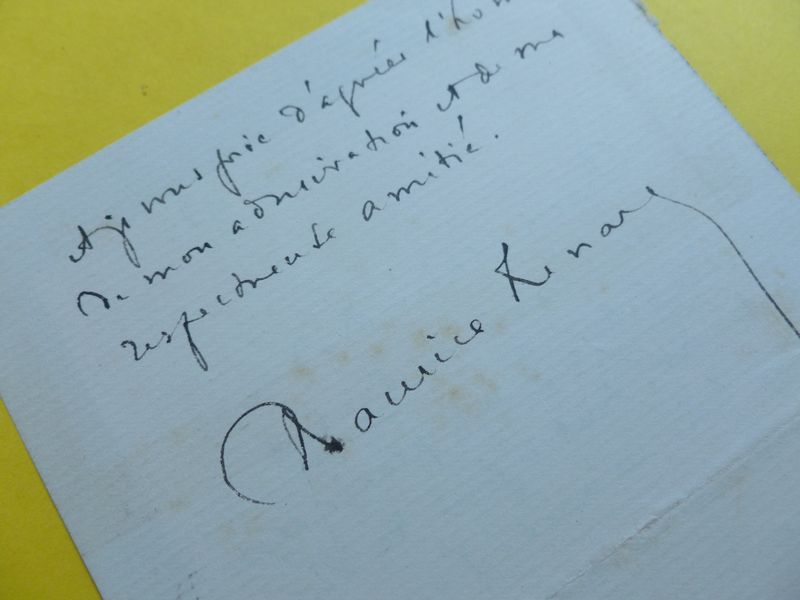 et je vous prie d'agréer l'hom
de mon admiration et de ma
respectueuse amitié.
Maurice Renard